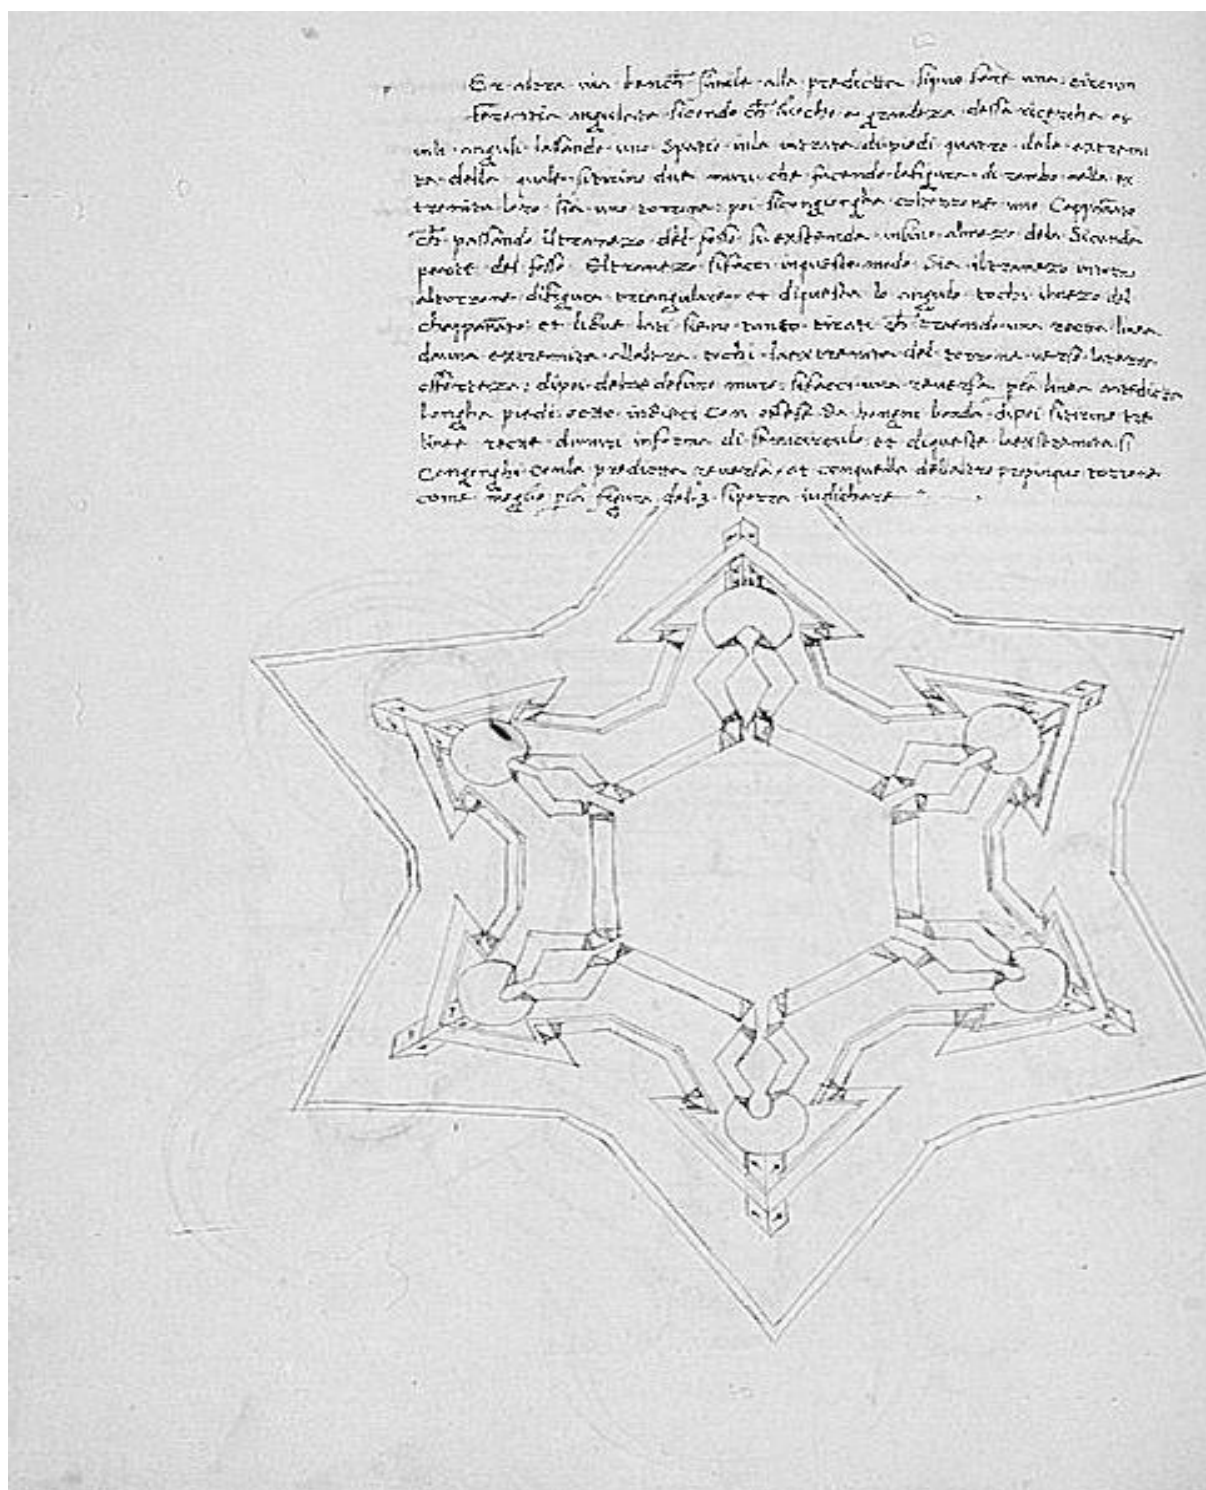 Et altra via bench simile alla predicta sipuo fare una circun
ferentia angulata sicondo ch luocho e grandeza dessa ricercha
anguli lassando uno spatio nila intrata di piedi quatro dale extremi
ta della quale sitirino due muri che facendo lafigura di rombo nella ex
tremita loro sia uno torrone poi sicongiongha coltorrone uno Cappannato
ch passando iltramezo del fosso si extenda infino almezo dela Siconda
parte del fosso Eltramezo sifacci inquesto modo Sia iltramezo intorno
altorrone difigura triangulare et diquesta lo angulo tochi ilmezo del
chappannato et lidue lati sieno tanto tirati ch traendo una recta linea
dauna extremita allaltra tochi laextremita del torrone verso laterra
offortezza dipoi deltre muro sifacci una reversa linea antedicta
longha piedi octo indieci Con offese da hongni banda dipoi sitirino tre
linee recte dimuri informa di semicirculo et diqueste laextremita si
Congionghi conla predicta reversa et conquella dellaltro propinquo torrone
come meglio figura del 3 sipotra iudichare